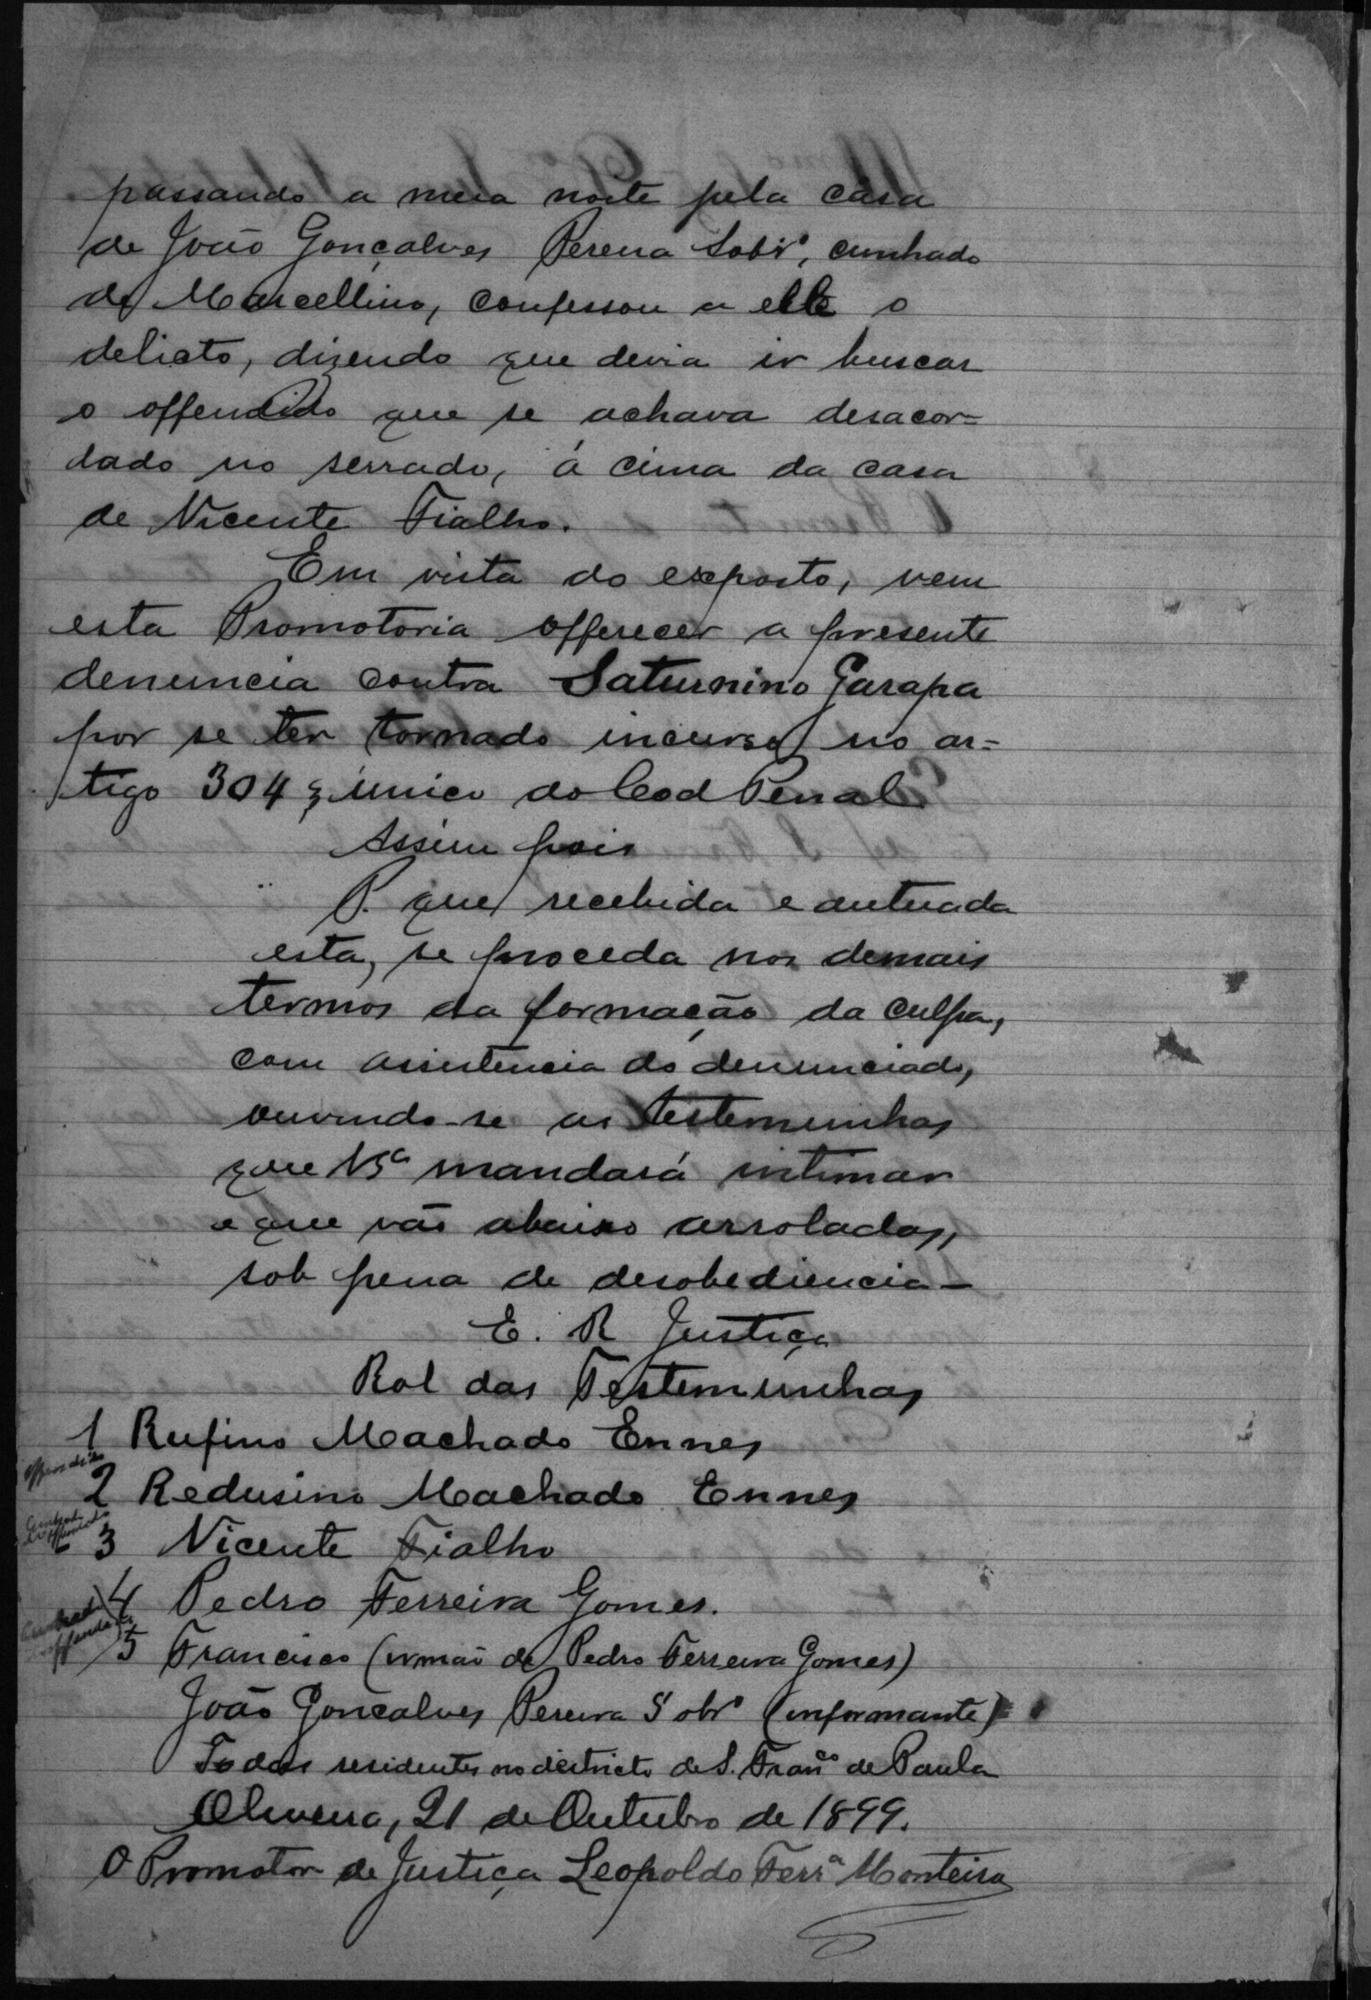 passando a meia noite pela casa
de João Gonçalves Pereira Sobrº, cunhado
de Marcellino, confessou a elle o
delicto, dizendo que devia ir buscar
o offendido que se achava desacor=
dado no serrado, á cima da casa
de Vicente Fialho.
Em vista do exposto, vem
esta Promotoria offerecer a presente
denuncia contra Saturnino Garapa
por se ter tornado incurso no ar=
tigo 304 § unico do Cod Penal
Assim pois
P. que recebida e autuada
esta, se proceda nos demais
termos da formação da culpa,
com assistencia do denunciado,
ouvindo-se as testemunhas
que VSª mandará intimar
e que vão abaixo arroladas,
sob pena de desobediencia—
E. R Justiça
Rol das Testemunhas
1 Rufino Machado Ennes
offendido
2 Redusino Machado Ennes
3 Vicente Fialho
4 Pedro Ferreira Gomes.
5 Francisco (irmão de Pedro Ferreira Gomes)
João Gonçalves Pereira Sobrº (informante)
Todos residentes no districto de S. Franco de Paula
Oliveira, 21 de Outubro de 1899.
O Promotor de Justiça Leopoldo Ferrª Monteiro